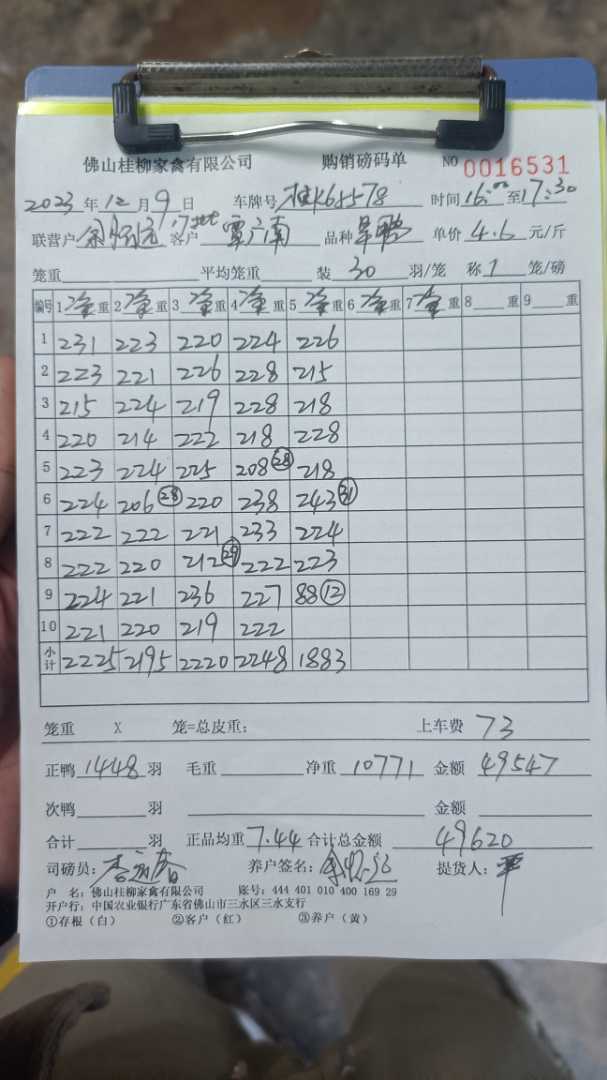 佛山桂柳家禽有限公司 购销磅码单 NO 0016531
2023年12月9日 车牌号 桂K68578 时间16:00至17:30
联营户 客户 覃广南 品种 单价 4.6 元/斤
笼重 平均笼重 装 30 羽/笼 称 1 笼/磅
编号 1净重 2净重 3净重 4净重 5净重 6净重 7净重 8 重 9 重
1 231 223 220 224 226
2 223 221 226 228 215
3 215 224 219 228 218
4 220 214 222 218 228
5 223 224 225 208 28 218
6 224 206 28 220 238 243 31
7 222 222 221 233 224
8 222 220 212 29 222 223
9 224 221 236 227 88 12
10 221 220 219 222
小计 2225 2195 2220 2248 1883
笼重 X 笼=总皮重: 上车费 73
正鸭 1448 羽 毛重 净重 10771 金额 49547
次鸭 羽 金额
合计 羽 正品均重 7.44 合计总金额 49620
司磅员: 养户签名: 提货人:
户 名: 佛山桂柳家禽有限公司 账号: 444 401 010 400 169 29
开户行: 中国农业银行广东省佛山市三水区三水支行
①存根（白） ②客户（红） ③养户（黄）